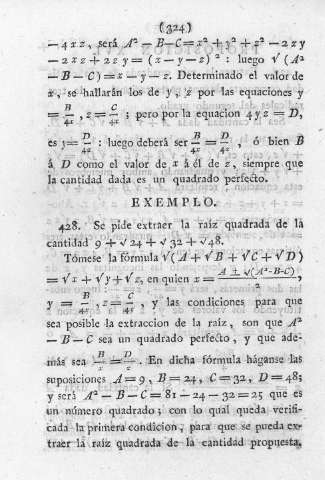 (324)
— 4xz, será A² — B — C = x² + y² + z² — 2xy
— 2xz + 2zy = (x — y — z)² : luego √ (A²
— B — C) = x — y — z. Determinado el valor de
x, se hallarán los de y, z por las equaciones y
= B/4x, z = C/4x; pero por la equacion 4yz = D,
es y = D/4z: luego deberá ser B/4x = D/4z, ó bien B
á D como el valor de x á él de z, siempre que
la cantidad dada es un quadrado perfecto.
EXEMPLO.
428. Se pide extraer la raíz quadrada de la
cantidad 9 + √24 + √32 + √48.
Tómese la fórmula √(A + √B + √C + √D)
= √x + √y + √z, en quien x = A ± √(A²-B-C)/2,
y = B/4y, z = C/4y, y las condiciones para que
sea posible la extraccion de la raíz, son que A²
— B — C sea un quadrado perfecto, y que ade-
más sea B/x = D/z. En dicha fórmula háganse las
suposiciones A = 9, B = 24, C = 32, D = 48;
y será A² — B — C = 81 — 24 — 32 = 25 que es
un número quadrado; con lo qual queda verifi-
cada la primera condicion, para que se pueda ex-
traer la raíz quadrada de la cantidad propuesta.